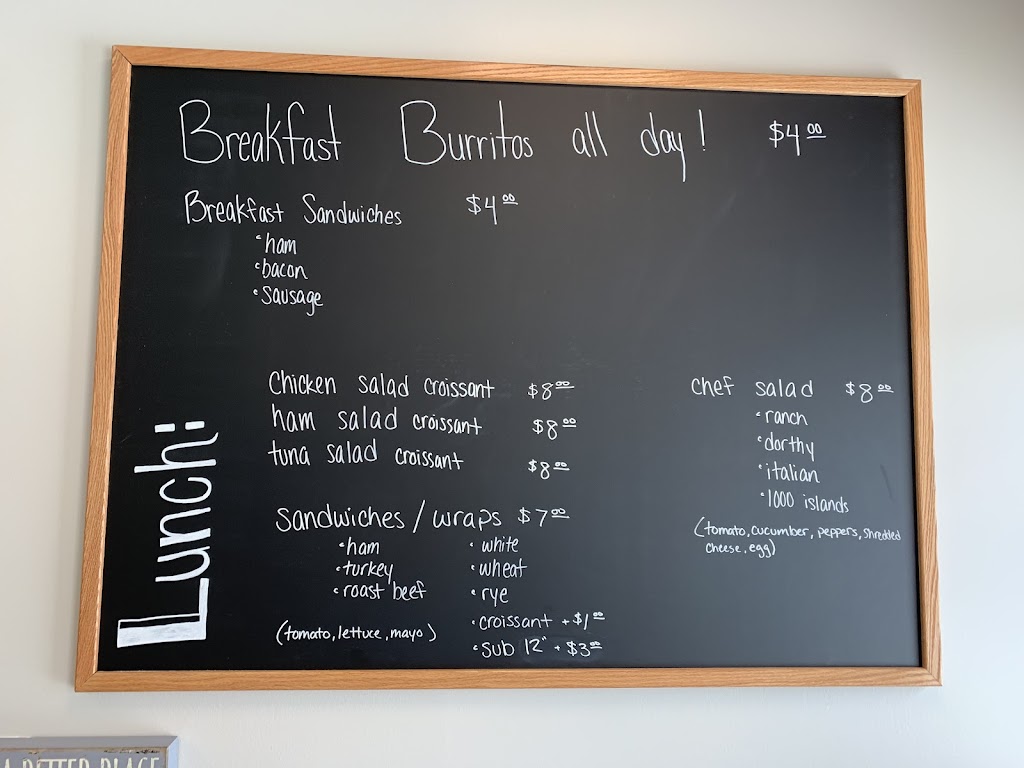 Breakfast Burritos all day! $4.00
Breakfast Sandwiches $4.00
• ham
• bacon
• Sausage
Lunch:
Chicken salad croissant $8.00
ham salad croissant $8.00
tuna salad croissant $8.00
Sandwiches / wraps $7.00
• ham
• turkey
• roast beef
(tomato, lettuce, mayo)
• white
• wheat
• rye
• croissant + $1.00
• Sub 12" + $3.00
chef salad $8.00
• ranch
• dorthy
• italian
• 1000 islands
(tomato, cucumber, peppers, shredded
cheese, egg)
A BETTER PLACE